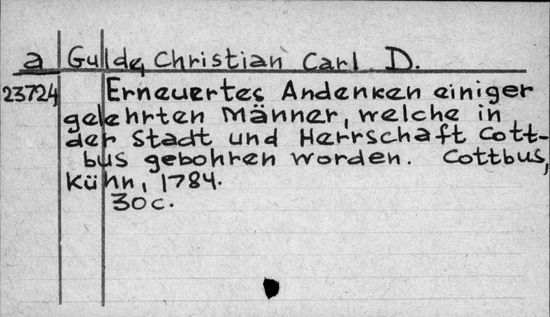 a Gulde, Christian Carl D.
23724 Erneuertes Andenken einiger
gelehrten Männer, welche in
der Stadt und Herrschaft Cott-
bus gebohren worden. Cottbus,
Kühn, 1784.
30c.